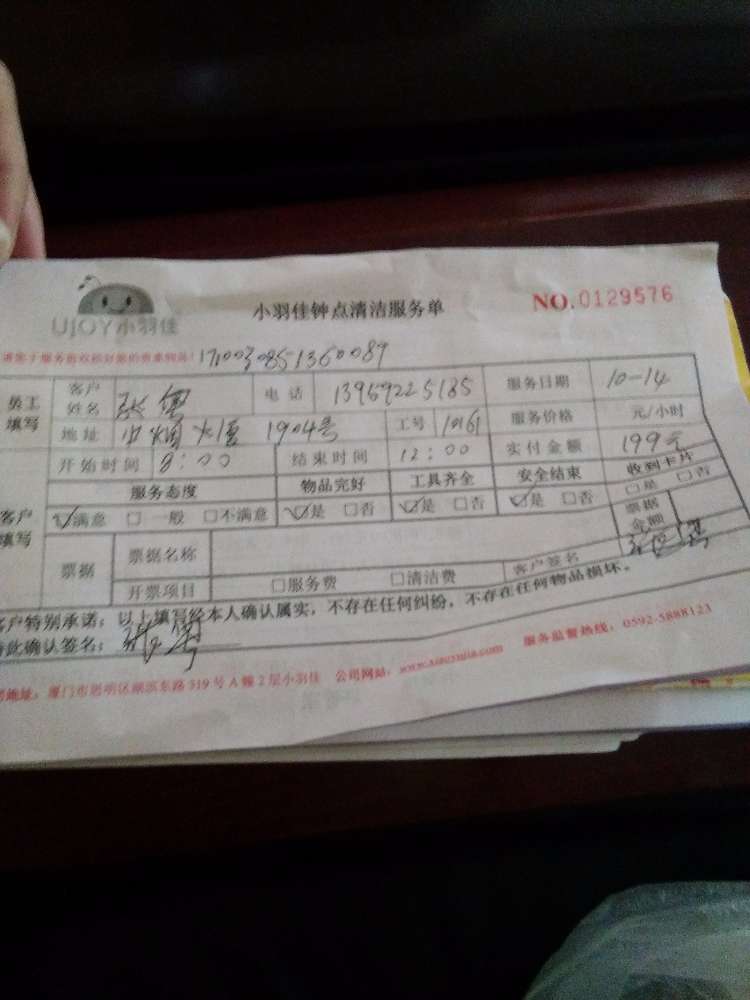 UJOY小羽佳
小羽佳钟点清洁服务单
NO.0129576
1710030851360089
员工填写
客户姓名 张 电话 13959225185 服务日期 10-14
地址 1904号 工号 10161 服务价格 元/小时
开始时间 8:00 结束时间 12:00 实付金额 199元
客户填写
服务态度 物品完好 工具齐全 安全结束 收到卡片
☑满意 □一般 □不满意 ☑是 □否 ☑是 □否 ☑是 □否 □是 □否
票据 票据名称 票据金额
开票项目 □服务费 □清洁费 客户签名
客户特别承诺:以上填写经本人确认属实,不存在任何纠纷,不存在任何物品损坏。
特此确认签名:
地址:厦门市思明区湖滨东路319号A幢2层小羽佳 公司网站:www.xiaoyujia.com 服务监督热线:0592-5888123